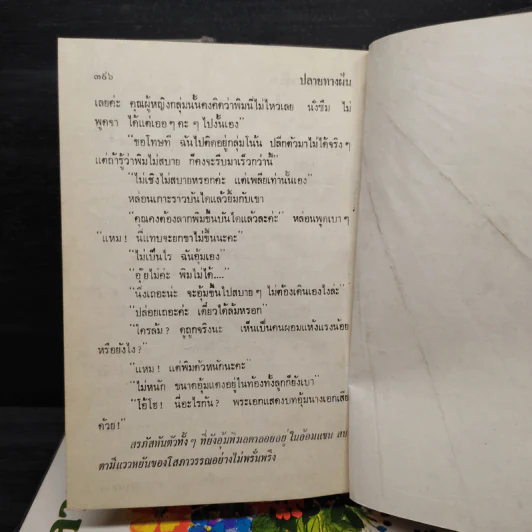 ๓๙๖ ปลายทางฝัน
เลยค่ะ คุณผู้หญิงกลุ่มนั้นคงคิดว่าพิมนี่ไม่ไหวเลย นั่งซึม ไม่
พูดจา ได้แต่เออๆ คะๆ ไปงั้นเอง"
"ขอโทษที ฉันไปติดอยู่กลุ่มโน้น ปลีกตัวมาไม่ได้จริงๆ
แต่ถ้ารู้ว่าพิมไม่สบาย ก็คงจะรีบมาเร็วกว่านี้"
"ไม่เชิงไม่สบายหรอกค่ะ แต่เพลียเท่านั้นเอง"
หล่อนเกาะราวบันไดแล้วยิ้มกับเขา
"คุณคงต้องลากพิมขึ้นบันไดแล้วละค่ะ" หล่อนพูดเบาๆ
"แหม! นี่แทบจะยกขาไม่ขึ้นนะคะ"
"ไม่เป็นไร ฉันอุ้มเอง"
"อุ๊ยไม่ค่ะ พิมไม่ได้...."
"นิ่งเถอะน่ะ จะอุ้มขึ้นไปสบายๆ ไม่ต้องเดินเองไงล่ะ"
"ปล่อยเถอะค่ะ เดี๋ยวได้ล้มหรอก"
"ใครล้ม? ดูถูกจริงนะ เห็นเป็นคนผอมแห้งแรงน้อย
หรือยังไง?"
"แหม! แต่พิมตัวหนักนะคะ"
"ไม่หนัก ขนาดอุ้มแดงอยู่ในท้องทั้งลูกก็ยังเบา"
"โอ้โฮ! นี่อะไรกัน? พระเอกแสดงบทอุ้มนางเอกเสีย
ด้วย!"
สรภัสหันตัวทั้งๆ ที่ยังอุ้มพิมลดาลอยอยู่ในอ้อมแขน สบ
ตามีแววหยันของโสภาวรรณอย่างไม่พรั่นพรึง